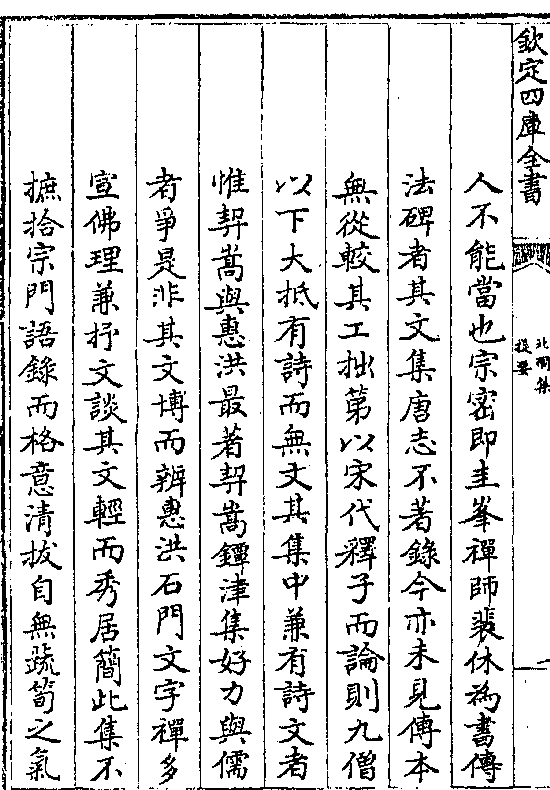 欽定四庫全書
北磵集
提要
人不能當也宗密即圭峯禪師裴休為書傳
法碑者其文集唐志不著錄今亦未見傳本
無從較其工拙第以宋代釋子而論則九僧
以下大抵有詩而無文其集中兼有詩文者
惟契嵩與惠洪最著契嵩鐔津集好力與儒
者爭是非其文博而辨惠洪石門文字禪多
宣佛理兼抒文談其文輕而秀居簡此集不
摭拾宗門語錄而格意清拔自無蔬筍之氣